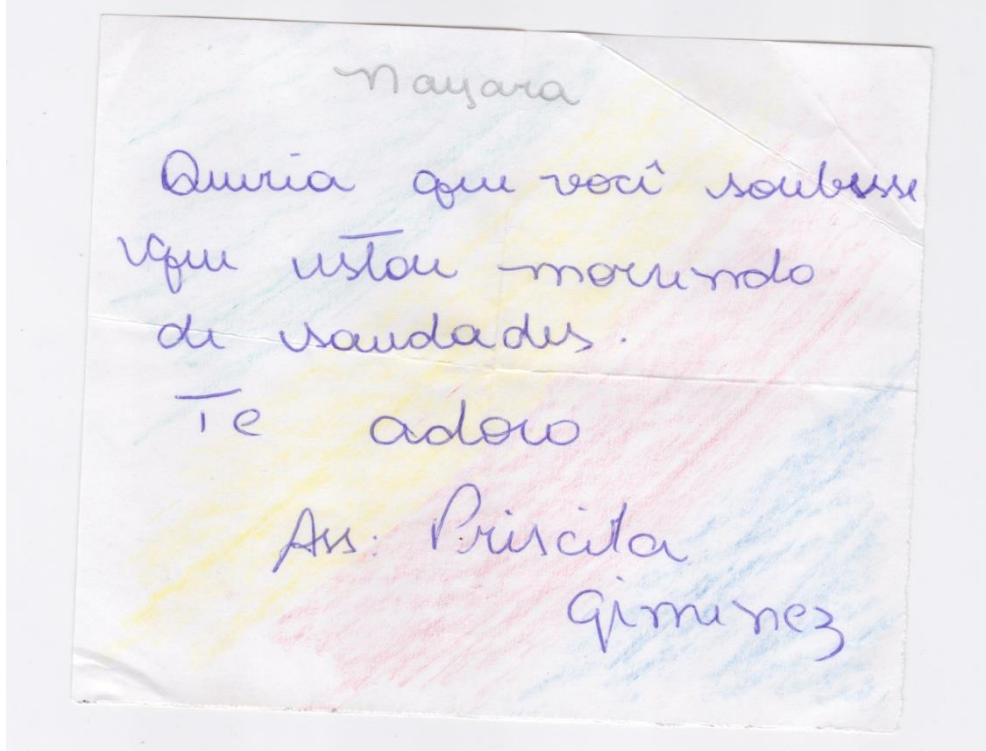 Nayara
Queria que você soubesse
que estou morrendo
de saudades.
Te adoro
Ass: Priscila
Gimenez